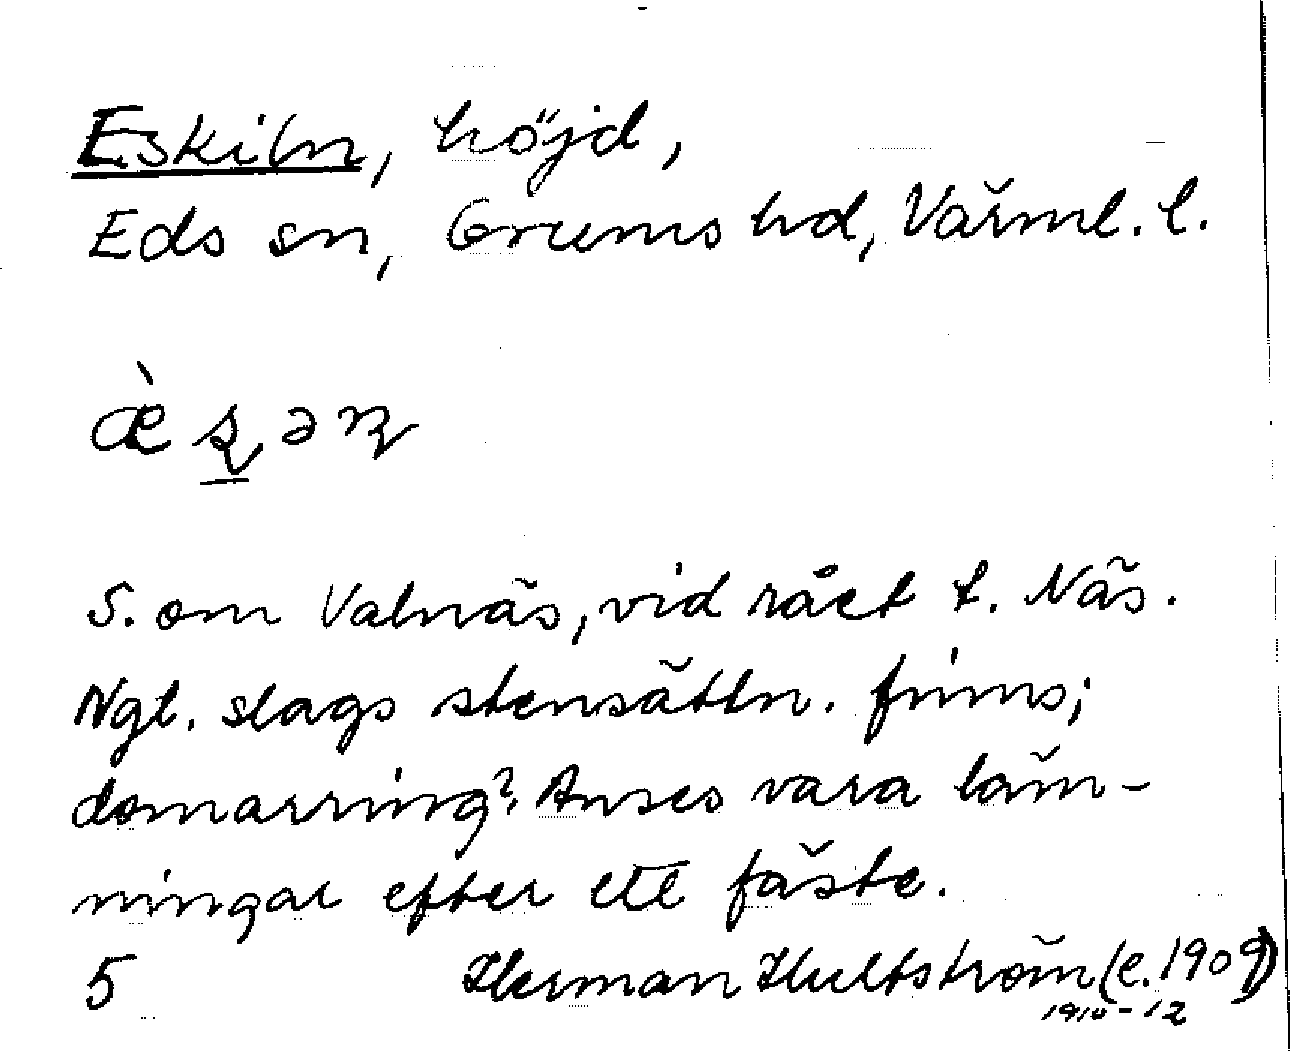 Eskiln, höjd,
Eds sn, Grums hd, Värml. l.
S. om Valnäs, vid rået t. Näs.
Ngt. slags stensättn. finns;
domarring? Anses vara läm-
ningar efter ett fäste.
5 Herman Hultström (c. 1909)
1910-12